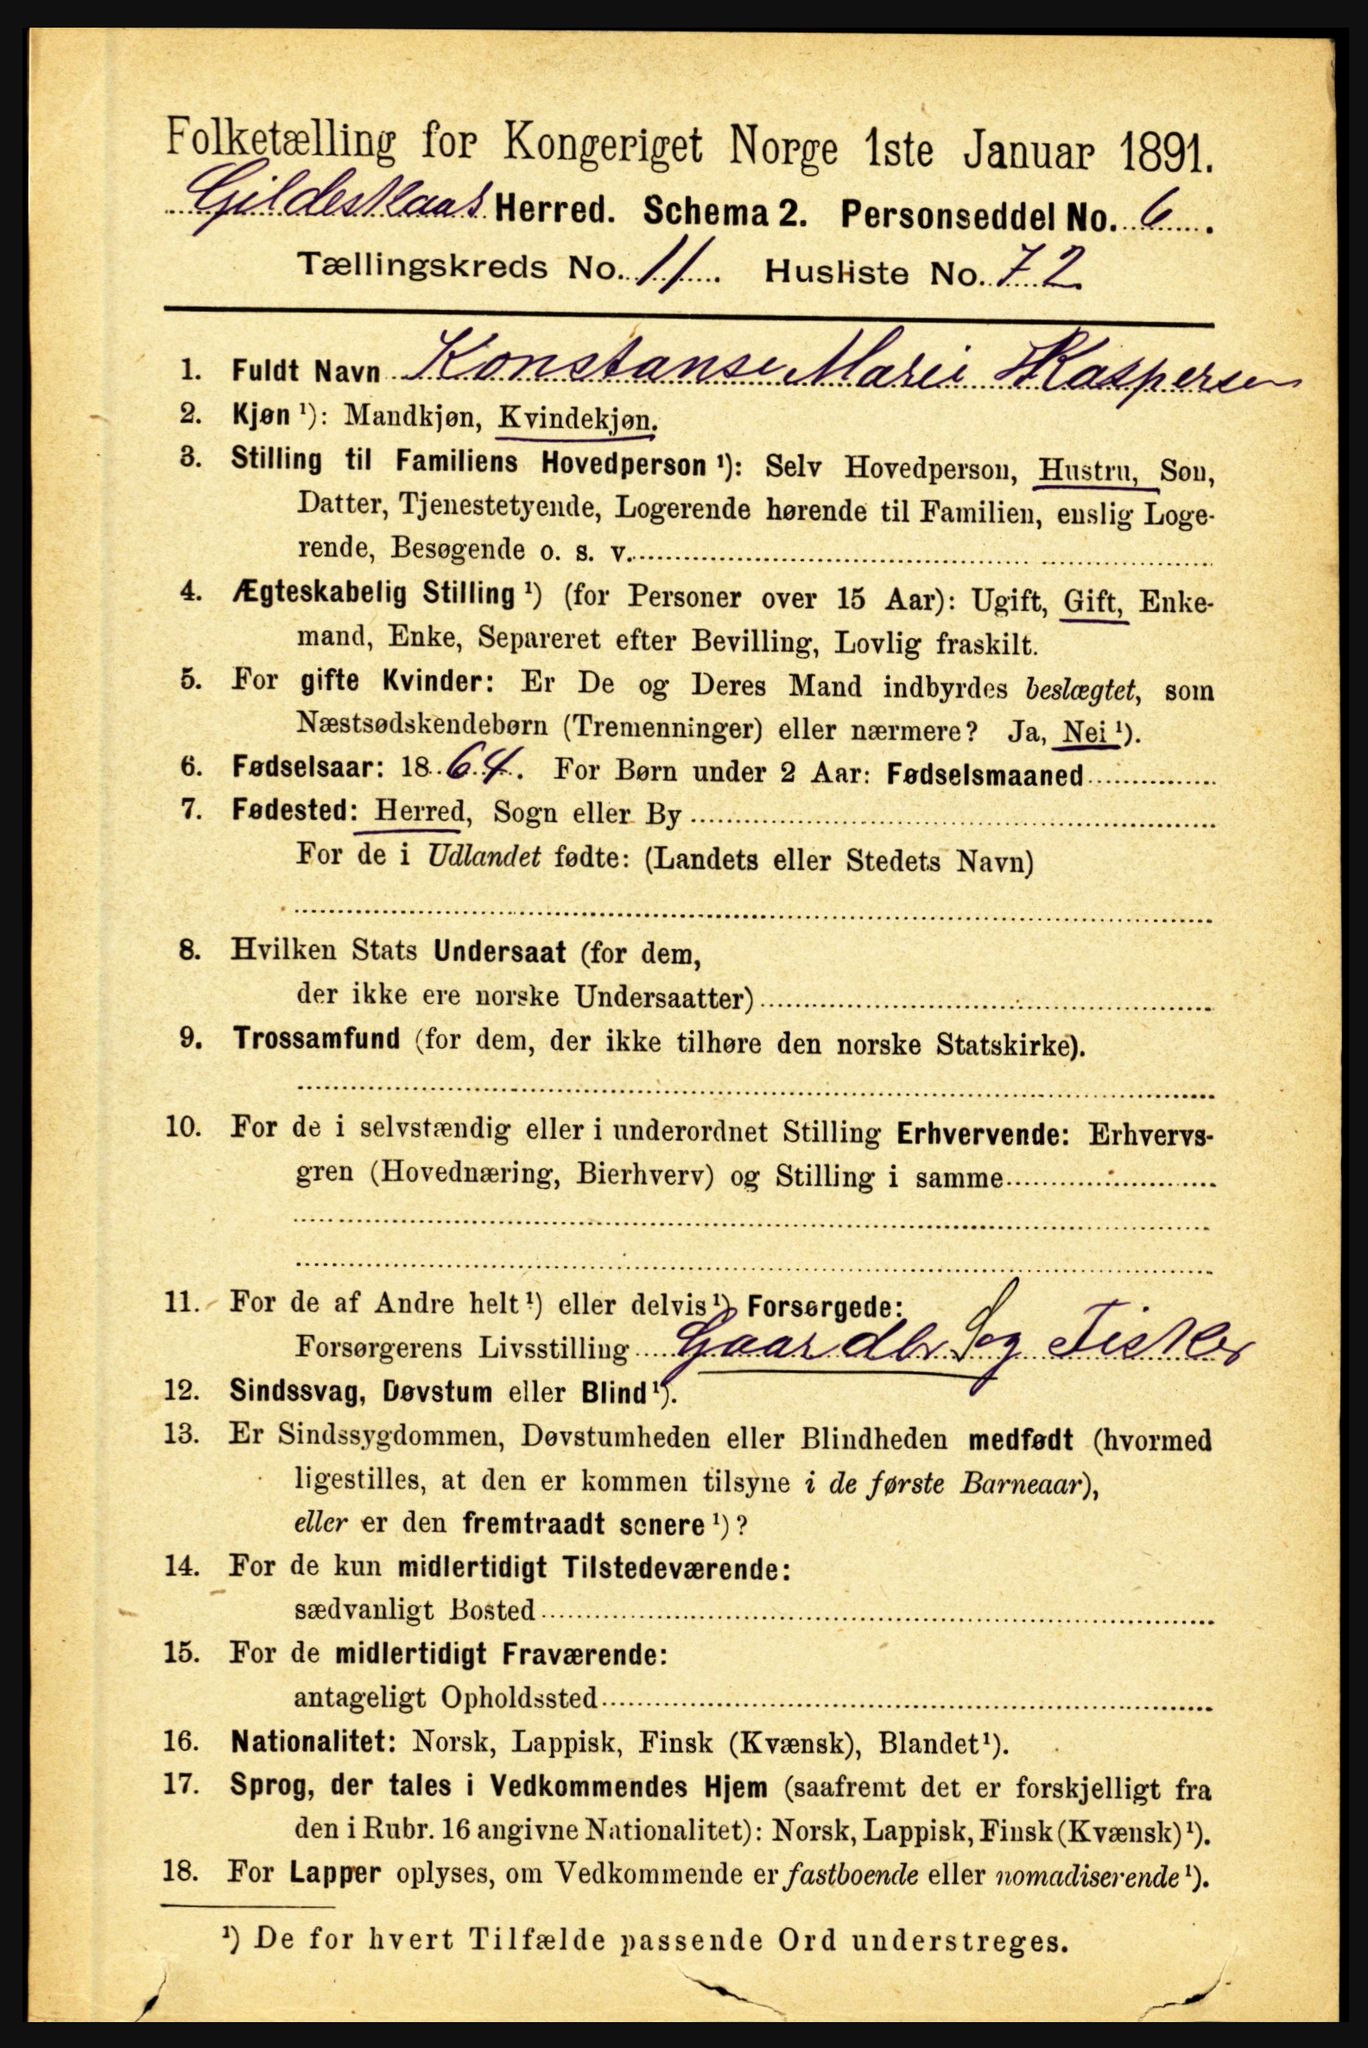 Folketælling for Kongeriget Norge 1ste Januar 1891.
Gildeskaal Herred. Schema 2. Personseddel No. 6.
Tællingskreds No. 11. Husliste No. 72
1. Fuldt Navn Konstanse Marie Kaspersen
2. Kjøn ¹): Mandkjøn, Kvindekjøn.
3. Stilling til Familiens Hovedperson ¹): Selv Hovedperson, Hustru, Søn,
Datter, Tjenestetyende, Logerende hørende til Familien, enslig Loge-
rende, Besøgende o. s. v.
4. Ægteskabelig Stilling ¹) (for Personer over 15 Aar): Ugift, Gift, Enke-
mand, Enke, Separeret efter Bevilling, Lovlig fraskilt.
5. For gifte Kvinder: Er De og Deres Mand indbyrdes beslægtet, som
Næstsødskendebørn (Tremenninger) eller nærmere? Ja, Nei ¹).
6. Fødselsaar: 1864. For Børn under 2 Aar: Fødselsmaaned
7. Fødested: Herred, Sogn eller By
For de i Udlandet fødte: (Landets eller Stedets Navn)
8. Hvilken Stats Undersaat (for dem,
der ikke ere norske Undersaatter)
9. Trossamfund (for dem, der ikke tilhøre den norske Statskirke).
10. For de i selvstændig eller i underordnet Stilling Erhvervende: Erhvervs-
gren (Hovednæring, Bierhverv) og Stilling i samme
11. For de af Andre helt ¹) eller delvis ¹) Forsørgede:
Forsørgerens Livsstilling Gaardbr S og Fisker
12. Sindssvag, Døvstum eller Blind ¹).
13. Er Sindssygdommen, Døvstumheden eller Blindheden medfødt (hvormed
ligestilles, at den er kommen tilsyne i de første Barneaar),
eller er den fremtraadt senere ¹)?
14. For de kun midlertidigt Tilstedeværende:
sædvanligt Bosted
15. For de midlertidigt Fraværende:
antageligt Opholdssted
16. Nationalitet: Norsk, Lappisk, Finsk (Kvænsk), Blandet ¹).
17. Sprog, der tales i Vedkommendes Hjem (saafremt det er forskjelligt fra
den i Rubr. 16 angivne Nationalitet): Norsk, Lappisk, Finsk (Kvænsk) ¹).
18. For Lapper oplyses, om Vedkommende er fastboende eller nomadiserende ¹).
¹) De for hvert Tilfælde passende Ord understreges.